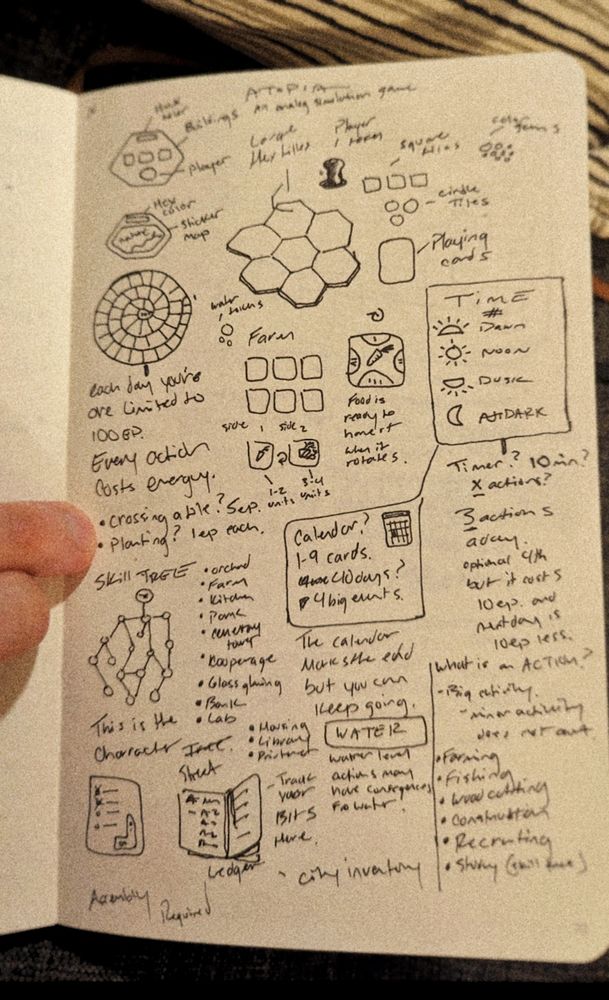 ATOPIA
An analog simulation game
Hex
color
Buildings
Player
Large
Hex tiles
Player
token
square
tiles
color
gems
circle
tiles
Hex
color
sticker
map
nature
Playing
cards
water
tokens
Farm
TIME
#
Dawn
NOON
DUSK
AFTDARK
each day you're
are limited to
100 EP.
Every action
costs energy.
• crossing a tile? 5ep.
• Planting? 1ep each.
side 1 side 2
1-2
units
3-4
units
Food is
ready to
harvest
when it
rotates.
Timer? 10 min?
X actions?
3 actions
a day.
optional 4th
but it costs
10ep. and
next day is
10ep less.
Calendar?
1-9 cards.
40 days?
4 big events.
SKILL TREE
• orchard
• Farm
• Kitchen
• Cooperage
• Glass glazing
• Bank
• Lab
• Housing
• Library
This is the
Character
Sheet
The calendar
Marks the end
but you can
Keep going.
WATER
water level
actions may
have consequences
What is an ACTION?
- Big activity.
- minor activity
does not count.
• Farming
• Fishing
• Wood cutting
• Construction
• Recruiting
• Study (skill tree)
- Track
your
BITS
Here.
Ledger
- city inventory
Assembly
Required